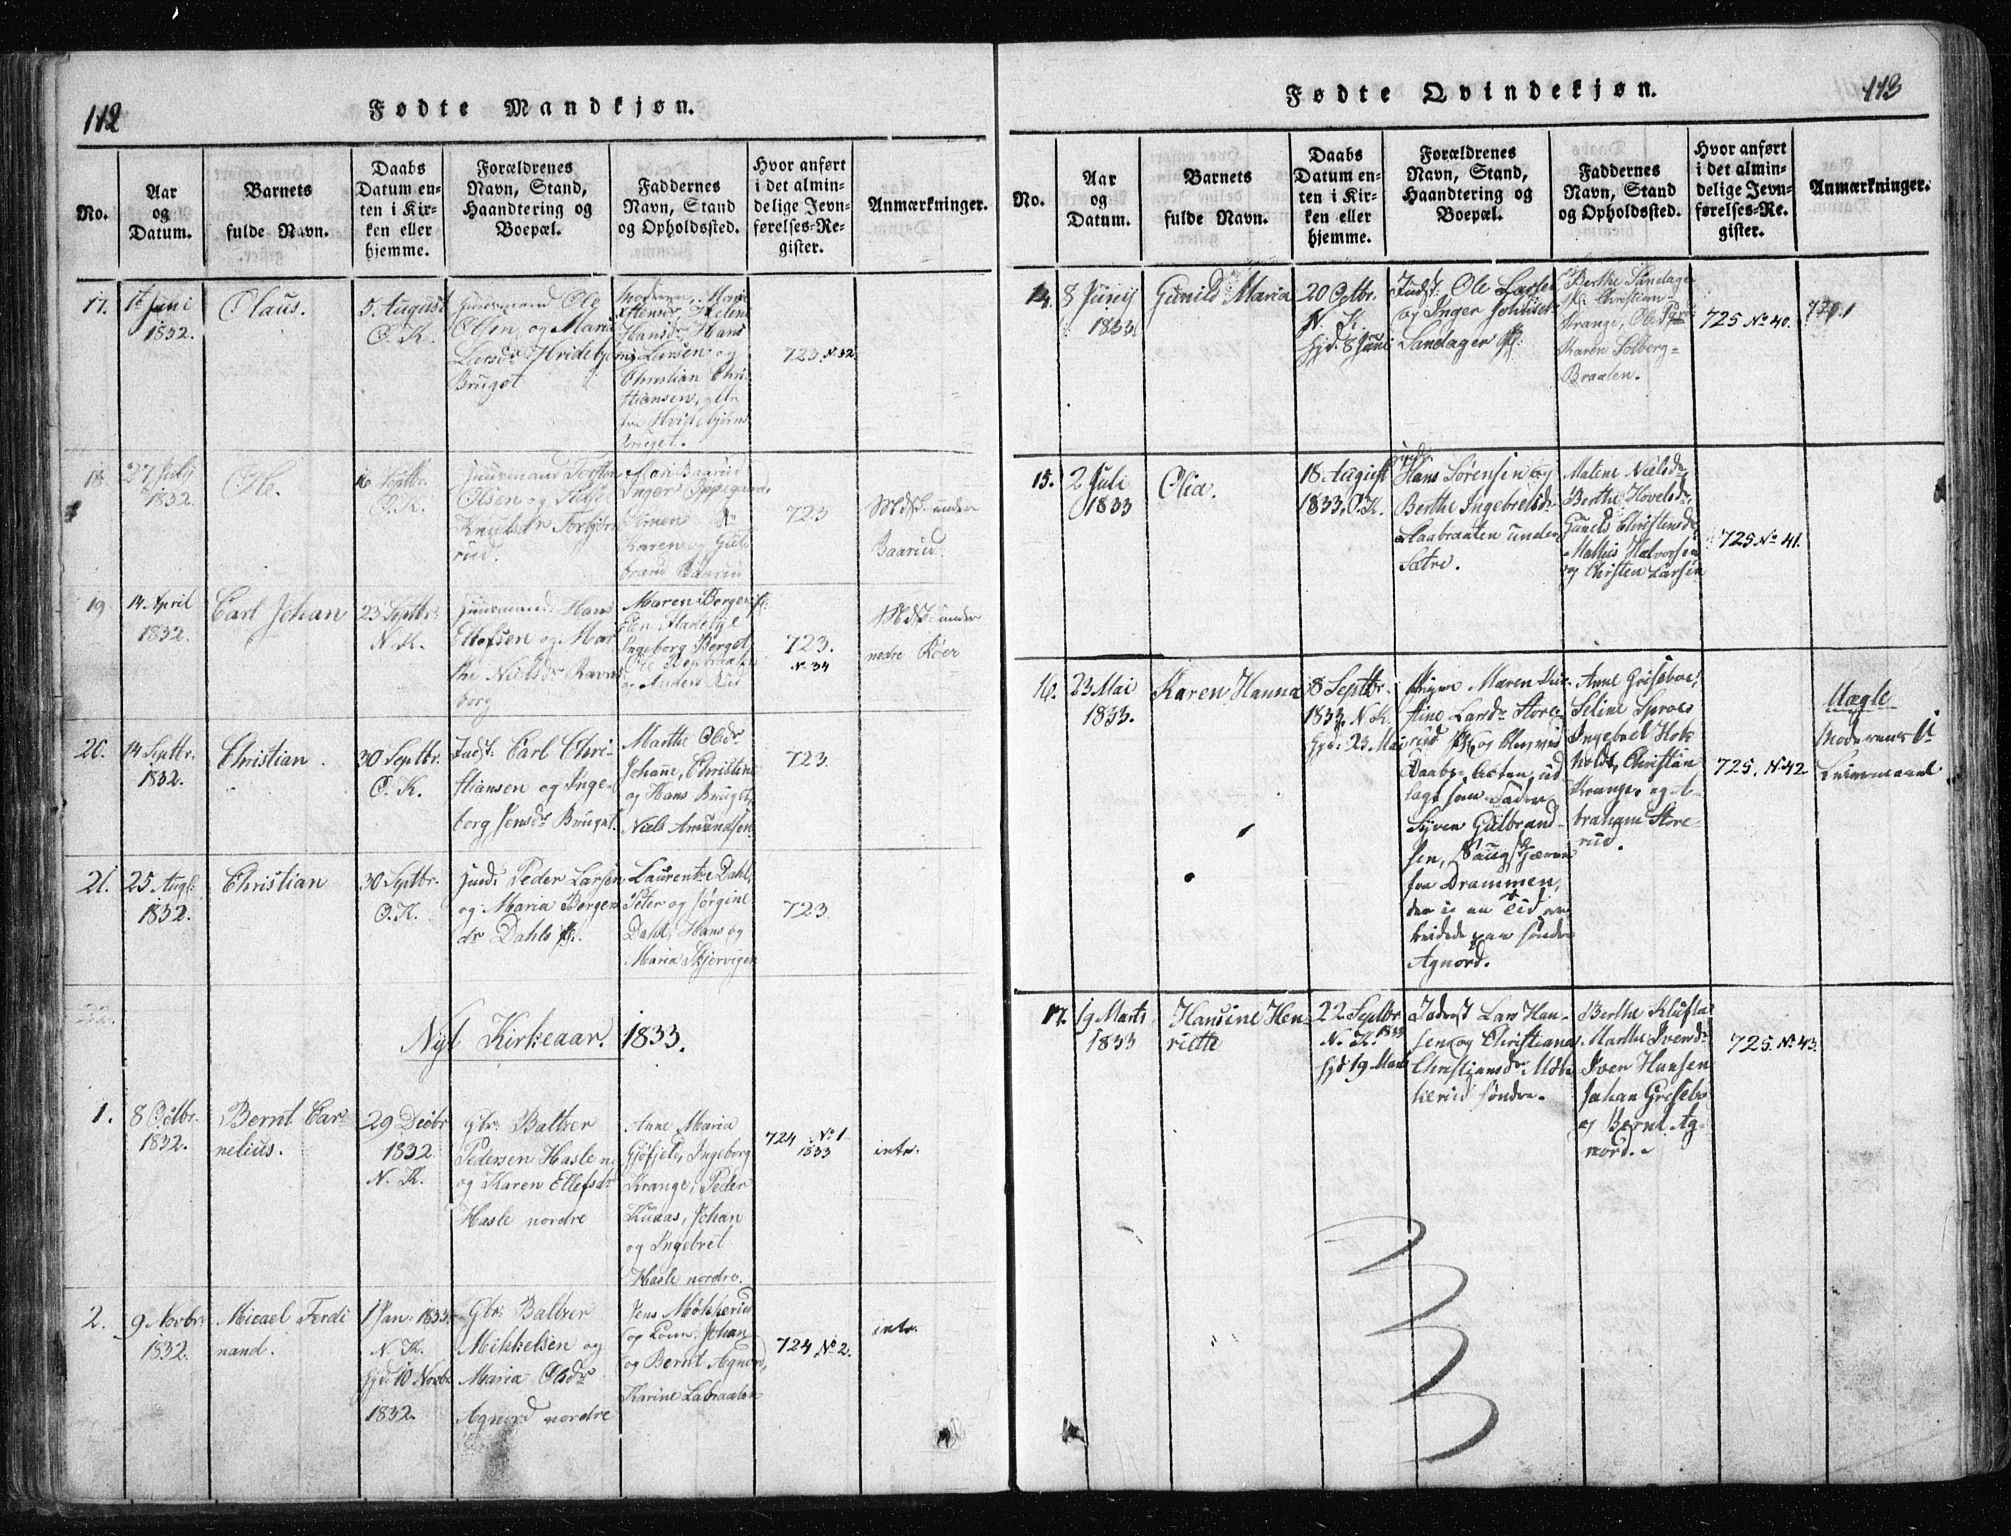 112
Fødte Mandkjøn.
No.
Aar
og
Datum.
Barnets
fulde Navn.
Daabs
Datum en-
ten i Kir-
ken eller
hjemme.
Forældrenes
Navn, Stand,
Haandtering og
Boepæl.
Faddernes
Navn, Stand
og Opholdssted.
Hvor anført
i det almin-
delige Jevn-
førelses-Re-
gister.
Anmærkninger.
17.
Juni
1832.
Olaus.
5 August
O. K.
Huusmand Ole
Olsen og Maria
Larsdr Hvidebjørn
Bruget
Hansdr Hans
Larsen og
Christian Chri-
stiansen, alle
fra Hvidebjørns
Bruget.
723 N. 32
18.
27 July
1832.
Ole.
16 Septbr.
O. K.
Huusmand
Olsen og
Knudsdr Torbjørn
rud.
Baarud
Inger Oppegaard,
Karen og Gul-
brand Baarud
723
under
Baarud.
19
14 April
1832.
Carl Johan
23 Septbr.
N. K.
Huusmand Hans
Ellefsen og Mar-
the Nielsdr Ravns
borg
Maren Bergersd.
Ingeborg Berget,
og Anders Rud
723.
N. 34
under
nedre Køer
20.
14 Septbr.
1832.
Christian.
30 Septbr.
O. K.
Indst. Carl Chri-
stiansen og Inge-
borg Jensdr Bruget.
Marthe Olsdr
Johane, Christine
og Hans Bruget,
Niels Amundsen
723.
21.
25 Augt.
1832.
Christian
30 Septbr.
O. K.
Huusd. Peder Larsen
og Maria Bergers
dr Dahls
Laurentze Dahl,
Peter og Jørgine
Dahl, Hans og
Maria Skjervigen
723.
22.
Nyt Kirkeaar. 1833.
1.
8 Octbr.
1832.
Bernt Cor-
nelius.
29 Decbr
1832
N. K.
Gbr. Baltzer
Pedersen Hasle n.
og Karen Ellefsdr
Hasle nordre
Anne Maria
Gjøfjeld, Ingeborg
Krange, Peder
Knaas, Johan
og Ingebret
Hasle nordre.
724 No 1
1833
intr.
2.
9 Novbr.
1832.
Micael Ferdi
nand.
1 Jan. 1833.
N. K.
Hjd. 10 Novbr
1832.
Gbr. Baltzer
Mikkelsen og
Maria Olsdr
Agnord nordre
Jens Møkkerud
og Kone, Johan
og Bernt Agnord,
Karine Labraaten
724 No 2.
intr.
113
Fødte Qvindekjøn.
No.
Aar
og
Datum.
Barnets
fulde Navn.
Daabs
Datum en-
ten i Kir-
ken eller
hjemme.
Forældrenes
Navn, Stand,
Haandtering og
Boepæl.
Faddernes
Navn, Stand
og Opholdssted.
Hvor anført
i det almin-
delige Jevn-
førelses-Re-
gister.
Anmærkninger.
14.
8 Junij
1833.
Gunild Maria
20 Octbr.
N. K.
Hjd. 8 Juni
Indst. Ole Larsen
og Inger Johnsdr
Sandager
Berthe Sandager
Christian
Krange, Ole
Karen Solberg
Braaten.
725 No 40.
15.
2 Juli
1833
Olia.
18 August
1833, O. K.
Hans Sørensen og
Berthe Ingebretsdr
Slaabraaten under
Sætre.
Malene Nielsdr,
Berthe Hovelsdr,
Guneld Christensdr
Mathis Halvorsen
og Christen Larsen
725 No 41.
16.
23 Mai
1833.
Karen Hanna
8 Septbr.
1833, N. K.
Hjd. 23 Mai
Pigen Maren Kir-
stine Larsdr Store-
rud og
Daabs-Acten ud-
lagt som Fader
Syver Gulbrand-
sen,
fra Drammen,
der i en Tid ar-
beidede paa søndre
Agnord.
Anne Griseboe,
Seline Sproes
Ingebret Hok-
holdt, Christian
Krange og A-
braham Store-
rud.
725. No 42
Uægte
Moderens 1te
Leiermaal.
17.
19 Marts
1833
Hansine Hen-
riette
22 Septbr
N. K. 1833
Hjd 19 Marts
Inderst Lars Han-
sen og Christiane
Christiansdr Møk-
kerud søndre.
Berthe Klufta
Marthe Iversdr
Iver Hansen
Johan Grisebo
og Bernt Ag-
nord.
725. No 43.